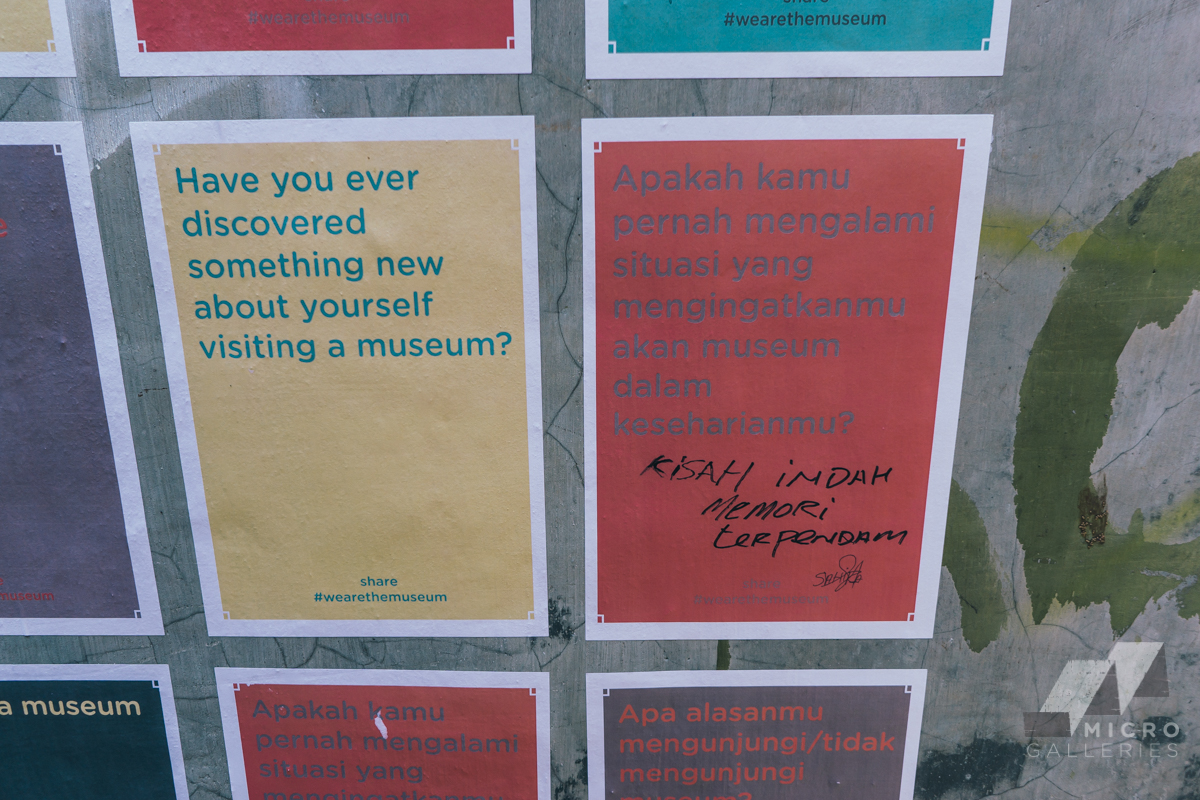 #wearethemuseum
share
#wearethemuseum
Have you ever
discovered
something new
about yourself
visiting a museum?
share
#wearethemuseum
Apakah kamu
pernah mengalami
situasi yang
mengingatkanmu
akan museum
dalam
keseharianmu?
KISAH INDAH
MEMORI
terpenDAM
share
#wearethemuseum
museum
a museum
Apakah kamu
pernah mengalami
situasi yang
mengingatkanmu
Apa alasanmu
mengunjungi/tidak
mengunjungi
museum?
MICRO
GALLERIES